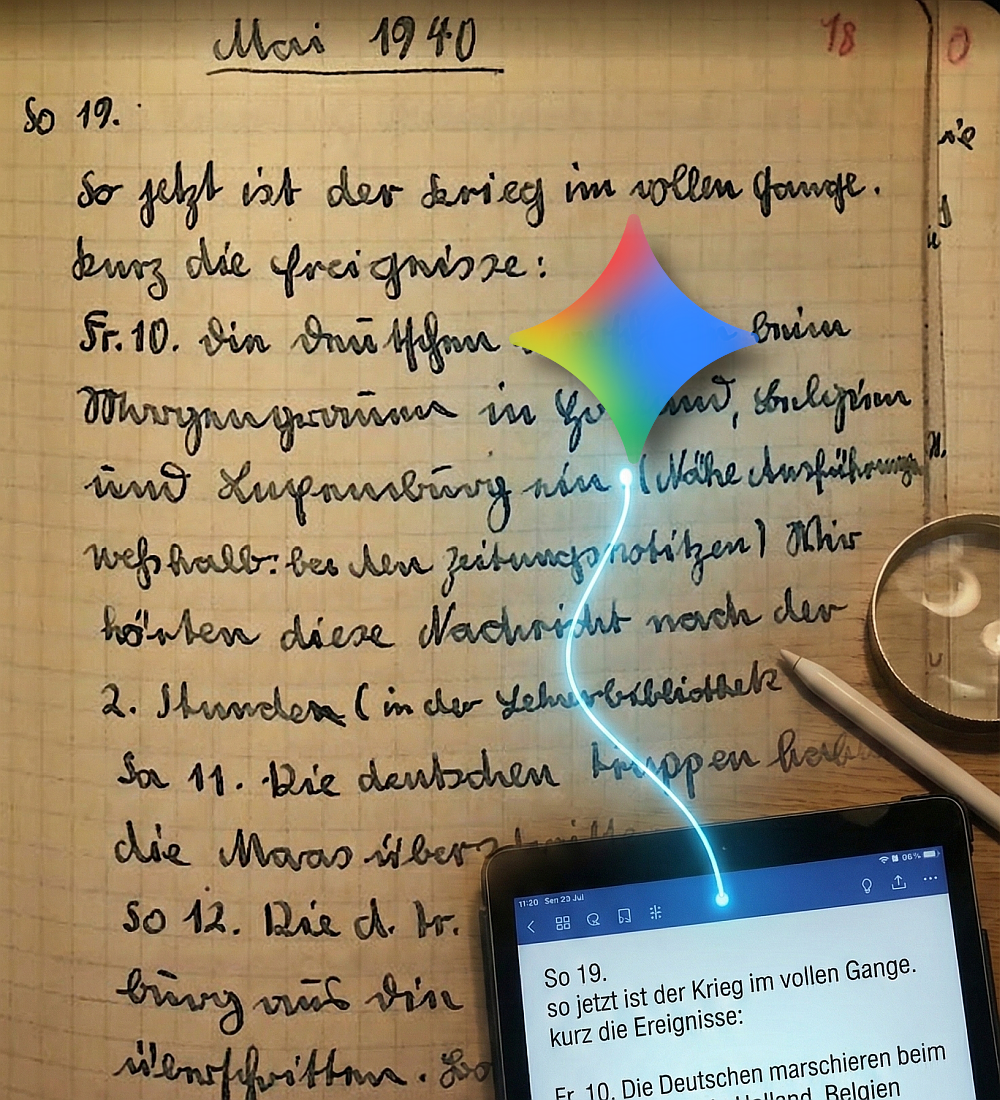 Mai 1940
18
0
So 19.
So jetzt ist der Krieg im vollen Gange.
kurz die Ereignisse:
Fr. 10. Die Deutschen beim
Morgengrauen in Ho and, Belgien
und Luxemburg ein (Nähe Ausführungen
weßhalb: bei den Zeitungsnotitzen) Wir
hörten diese Nachricht nach der
2. Stunden (in der Lehrerbibliothek
Sa 11. Die deutschen Truppen hab
die Maas überschritten
So 12. Die d. Tr.
burg aus die
überschritten. Bo
11:20 Sen 23 Jul
06%
So 19.
so jetzt ist der Krieg im vollen Gange.
kurz die Ereignisse:
Fr. 10. Die Deutschen marschieren beim
Holland, Belgien